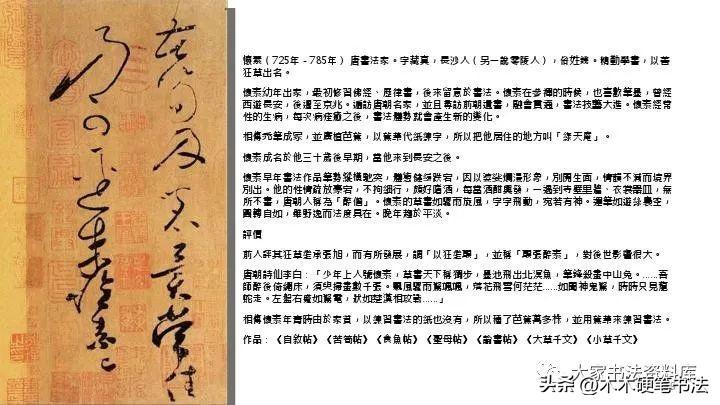 苦筍及茗異常佳
乃可逕來懷素上
懷素（725年－785年） 唐書法家。字藏真，長沙人（另一說零陵人），俗姓錢。精勤學書，以善
狂草出名。
懷素幼年出家，最初修習佛經、歷律書，後來留意於書法。懷素在參禪的時候，也喜歡筆墨，曾經
西遊長安，後遷至京兆。遍訪唐朝名家，並且尋訪前朝遺書，融會貫通，書法技藝大進。懷素經常
性的生病，每次病痊癒之後，書法體勢就會產生新的變化。
相傳禿筆成冢，並廣植芭蕉，以蕉葉代紙練字，所以把他居住的地方叫「綠天庵」。
懷素成名於他三十歲後早期，當他來到長安之後。
懷素早年書法作品筆勢縱橫馳突，體態健絕跌宕，因以婆娑爛漫形象，別開生面，情韻不減而境界
別出。他的性情疏放豪宕，不拘細行，頗好飲酒，每當酒酣興發，一遇到寺壁里牆、衣裳器皿，無
所不書，唐朝人稱為「醉僧」。懷素的草書如驟雨旋風，字字飛動，宛若有神。運筆如遊絲裊空，
圓轉自如，率野逸而法度具在。晚年趨於平淡。
評價
前人評其狂草坐承張旭，而有所發展，謂「以狂坐顛」，並稱「顛張醉素」，對後世影響很大。
唐朝詩仙李白：「少年上人號懷素，草書天下稱獨步，墨池飛出北溟魚，筆鋒殺盡中山兔。……吾
師醉後倚繩床，須臾掃盡數千張。飄風驟雨驚颯颯，落花飛雪何茫茫……如聞神鬼驚，時時只見龍
蛇走。左盤右蹙如驚電，狀如楚漢相攻戰……」
相傳懷素年青時由於家貧，以練習書法的紙也沒有，所以種了芭蕉萬多株，並用蕉葉來練習書法。
作品：《自敘帖》《苦筍帖》《食魚帖》《聖母帖》《論書帖》《大草千文》《小草千文》
大家书法资料库
头条 @木木硬笔书法